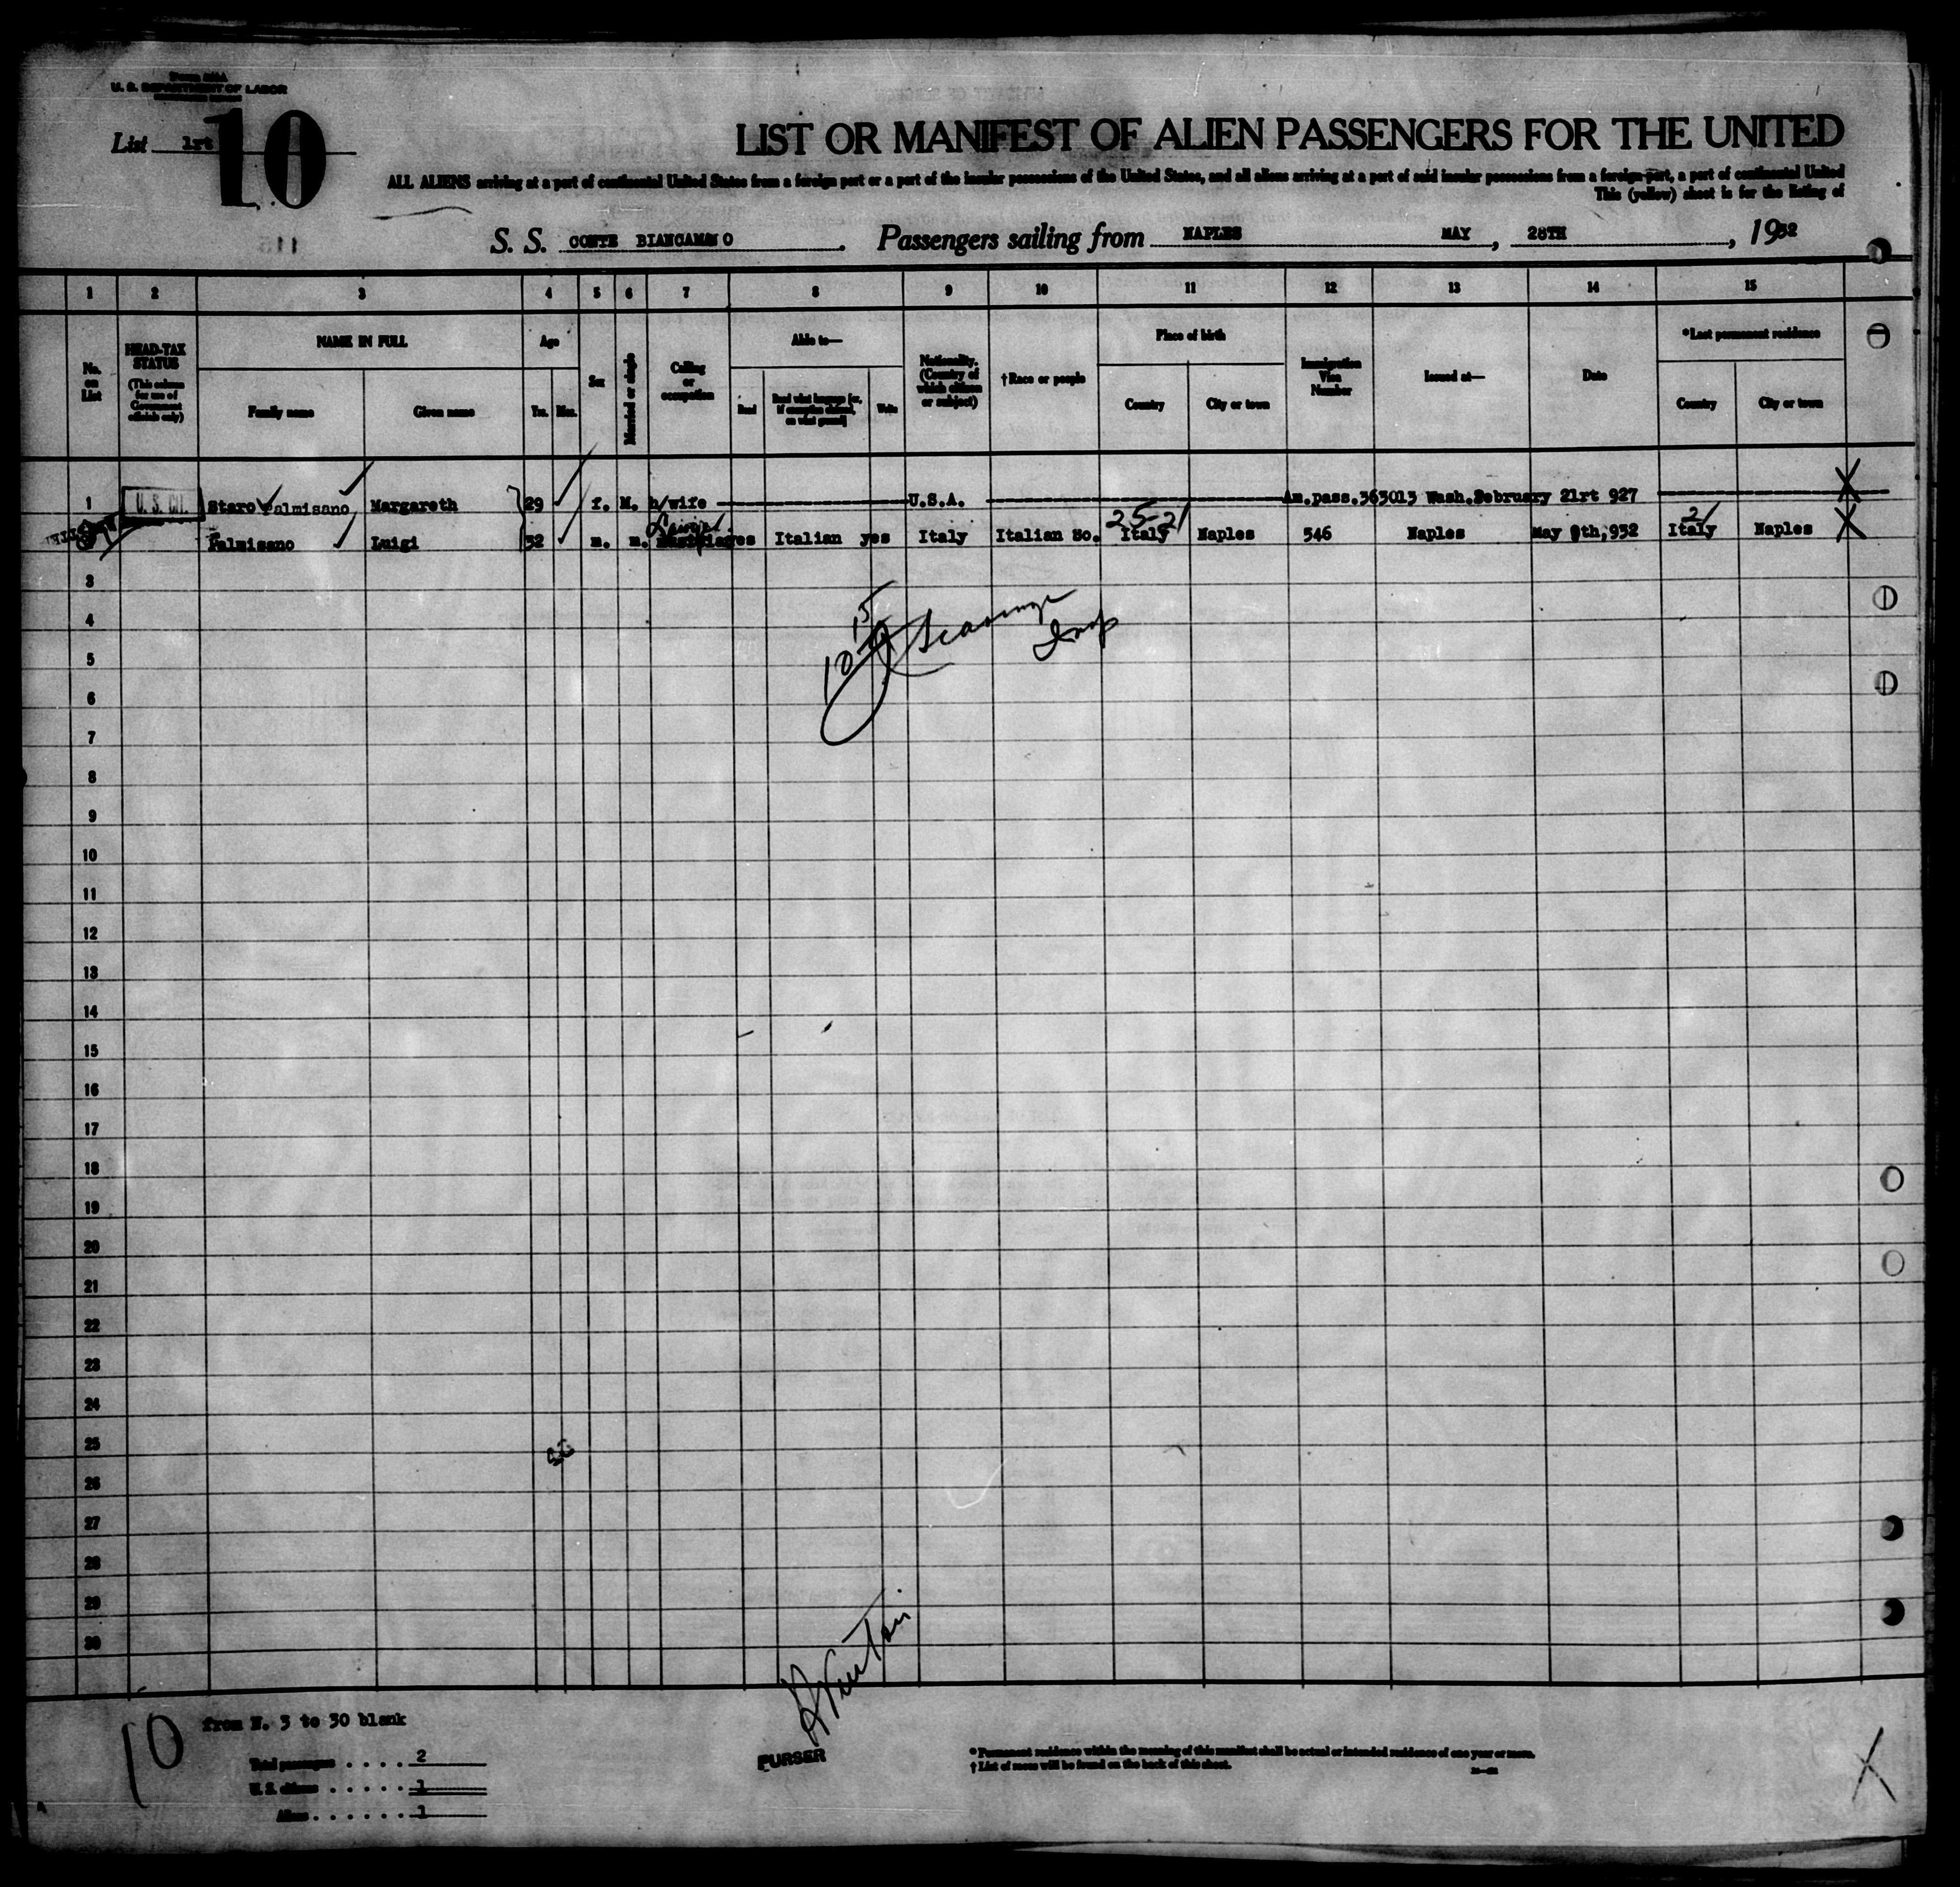 U. S. DEPARTMENT OF LABOR
List 1rt
10
LIST OR MANIFEST OF ALIEN PASSENGERS FOR THE UNITED
ALL ALIENS arriving at a port of continental United States from a foreign port or a port of the insular possessions of the United States, and all aliens arriving at a port of said insular possessions from a foreign port, a port of continental United
This (yellow) sheet is for the listing of
S. S. CONTE BIANCAMANO . Passengers sailing from NAPLES MAY , 28TH , 1932
1 2 3 4 5 6 7 8 9 10 11 12 13 14 15
No. on List
HEAD-TAX STATUS (This column for use of Government officials only)
NAME IN FULL
Family name Given name
Age
Yrs. Mos.
Sex
Married or single
Calling or occupation
Able to—
Read Read what language [or, if exemption claimed, on what ground] Write
Nationality. (Country of which citizen or subject)
†Race or people
Place of birth
Country City or town
Immigration Visa Number
Issued at—
Date
*Last permanent residence
Country City or town
1 U. S. CIT. Staro Palmisano Margareth 29 f. M. h/wife U.S.A. Am.pass.363013 Wash.February 21rt 927
25-21 21
Palmisano Luigi 32 m. m. yes Italian yes Italy Italian So. Italy Naples 546 Naples May 9th,932 Italy Naples
3
4
5
6
7
8
9
10
11
12
13
14
15
16
17
18
19
20
21
22
23
24
25
26
27
28
29
30
10
from N. 3 to 30 blank
Total passengers . . . . 2
U. S. citizens . . . . . 1
Aliens . . . . . . 1
PURSER
* Permanent residence within the meaning of this manifest shall be actual or intended residence of one year or more.
† List of races will be found on the back of this sheet.